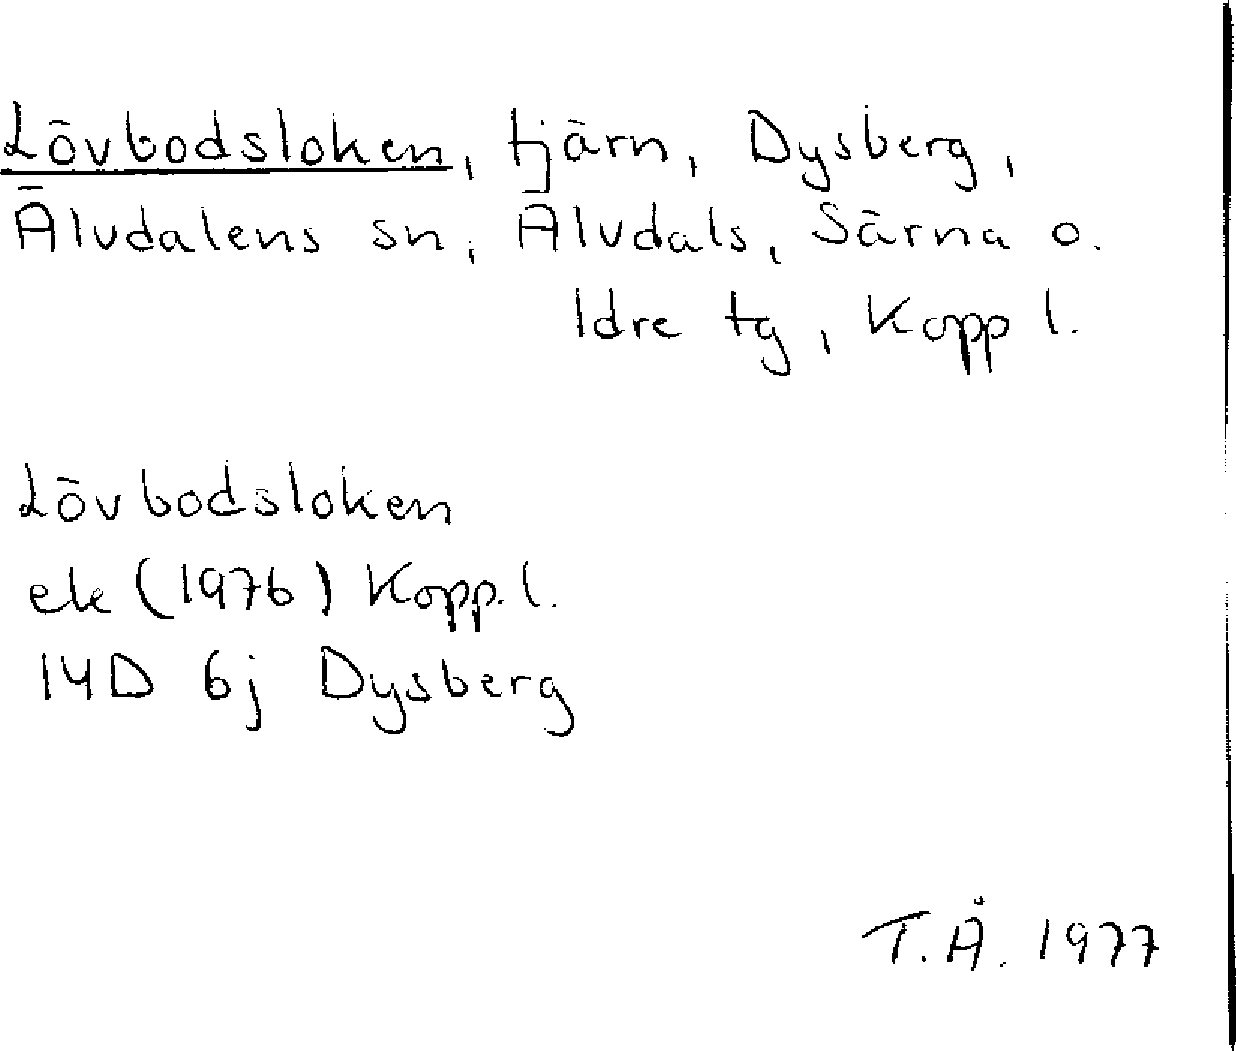 Lövbodsloken, tjärn, Dysberg,
Älvdalens sn, Älvdals, Särna o.
Idre tg, Kopp l.
Lövbodsloken
ek (1976) Kopp. l.
14D 6j Dysberg
T.Å. 1977